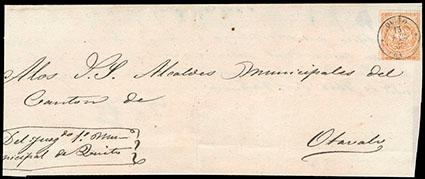 A los S.S. Alcaldes Municipales del
Canton de
Otavalo
Del juzgdo 1º Mu-
nicipal de Quito